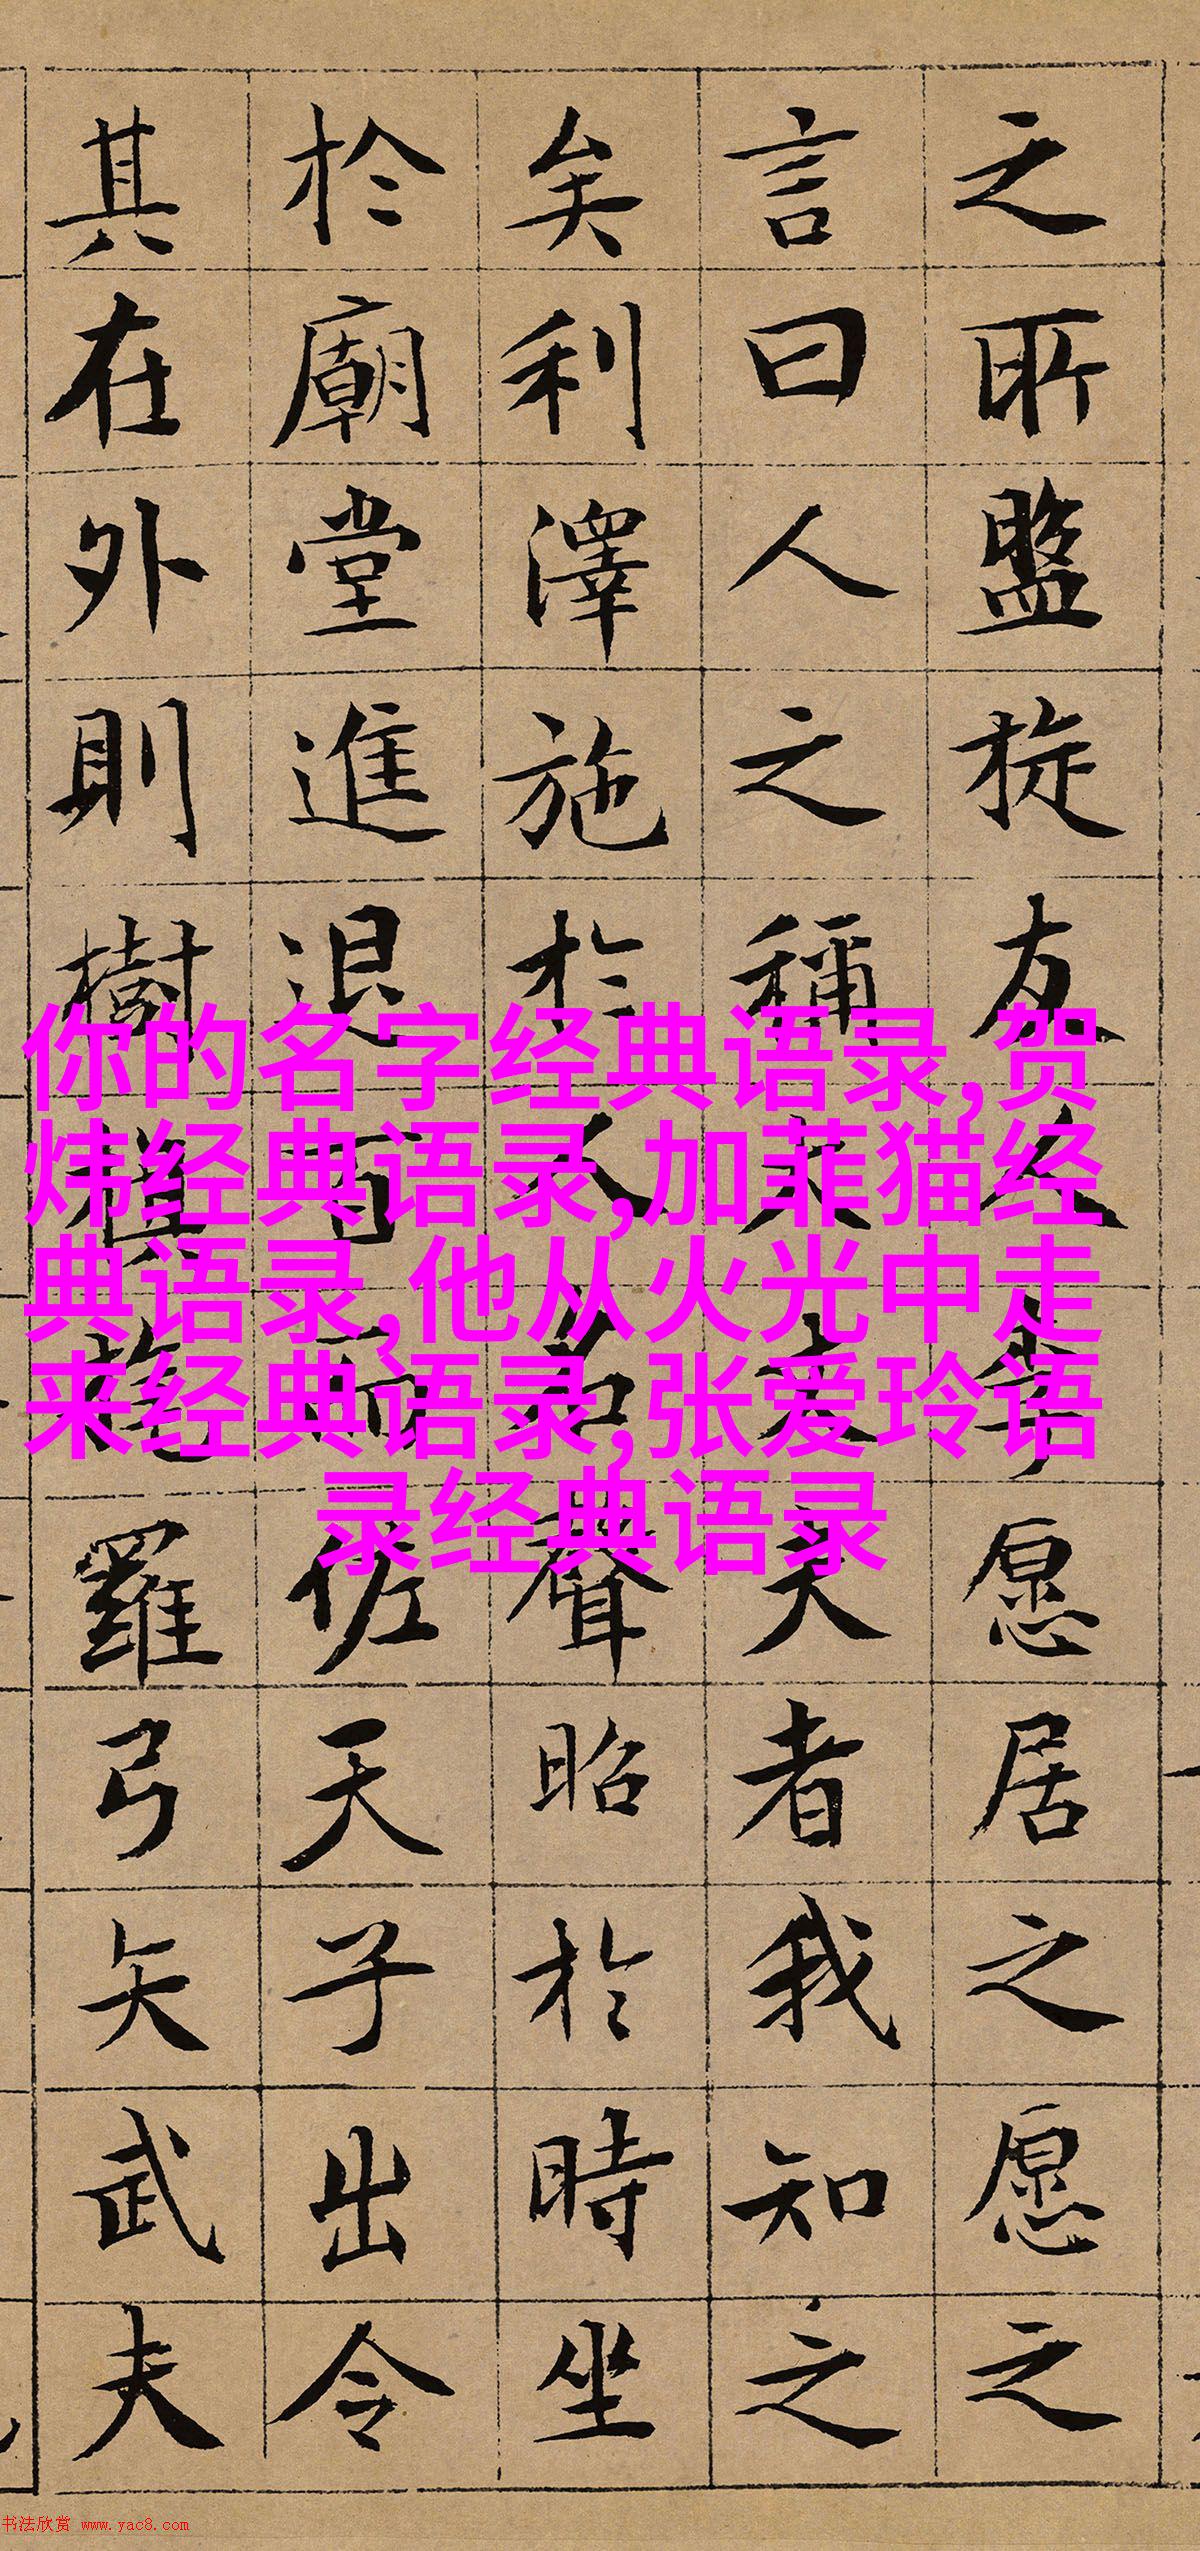 之所盤旋友人李愿居之愿之
言曰人之稱大丈夫者我知之
矣利澤施於人名聲昭於時坐
於廟堂進退百而佐天子出令
其在外則樹旗旄羅弓矢武夫
你的名字经典语录,贺
炜经典语录,加菲猫经
典语录,他从火光中走
来经典语录,张爱玲语
录经典语录
书法欣赏 www.yac8.com